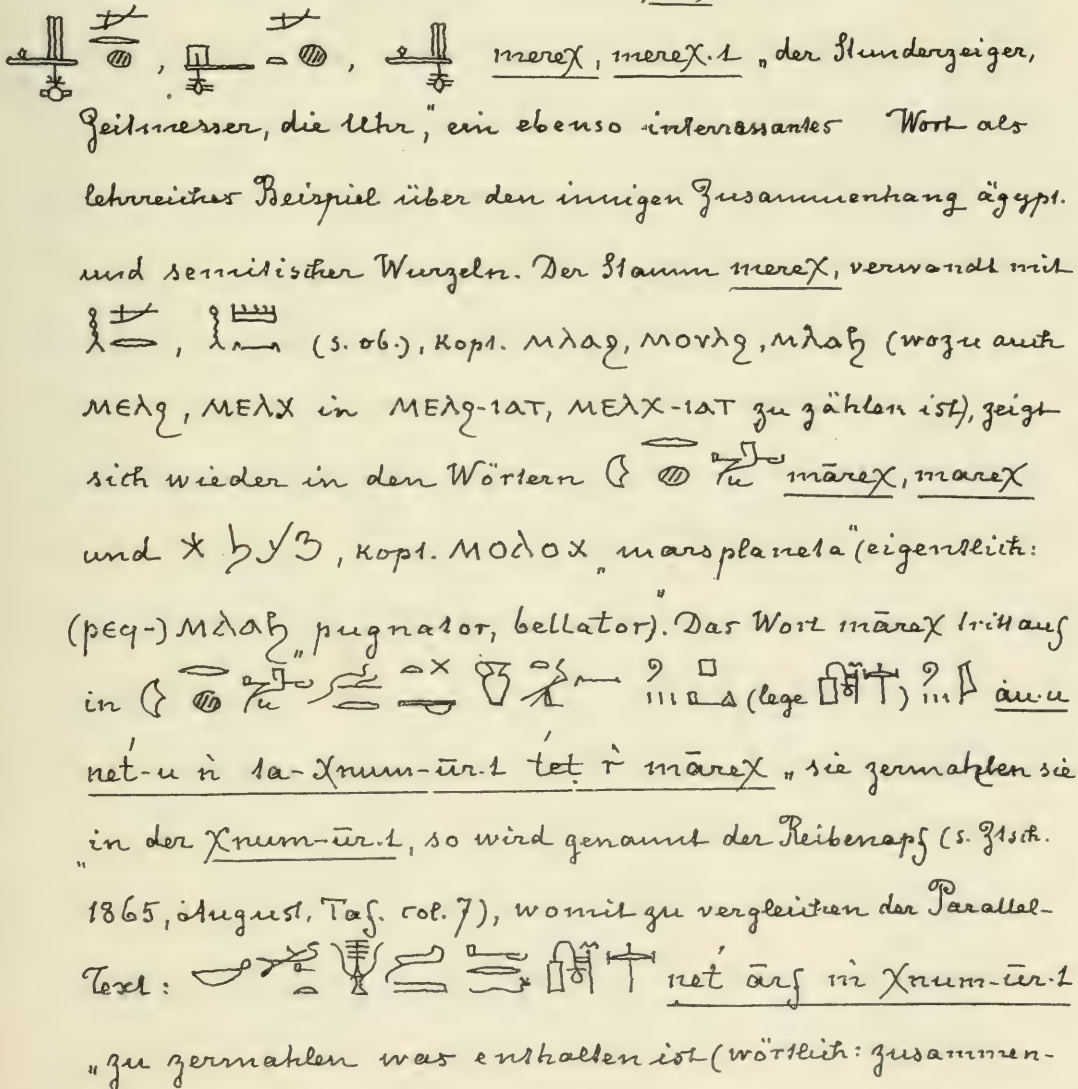 mereχ, mereχ.t „der Stundenzeiger,
Zeitmesser, die Uhr,“ ein ebenso interressantes Wort als
lehrreiches Beispiel über den innigen Zusammenhang ägypt.
und semitischer Wurzeln. Der Stamm mereχ, verwandt mit
(s. ob.), kopt. ⲙⲗⲁϩ, ⲙⲟⲩⲗϩ, ⲙⲗⲁϧ (wozu auch
ⲙⲉⲗϩ, ⲙⲉⲗⲭ in ⲙⲉⲗϩ-ⲓⲁⲧ, ⲙⲉⲗⲭ-ⲓⲁⲧ zu zählen ist), zeigt
sich wieder in den Wörtern māreχ, mareχ
und kopt. ⲙⲟⲗⲟⲭ „mars planeta“ (eigentlich:
(ⲣⲉϥ-) ⲙⲗⲁϧ „pugnator, bellator“). Das Wort māreχ tritt auf
in (lege ) áu.u
net́-u ǹ ta-χnum-ūr.t t́eṭ r̀ māreχ „sie zermahlen sie
„in der χnum-ūr.t, so wird genannt der Reibenapf (s. Ztsch.
1865, August, Taf. col. 7), womit zu vergleichen der Parallel-
Text: net́ ārf m̀ χnum-ūr.t
„zu zermahlen was enthalten ist (wörtlich: zusammen-